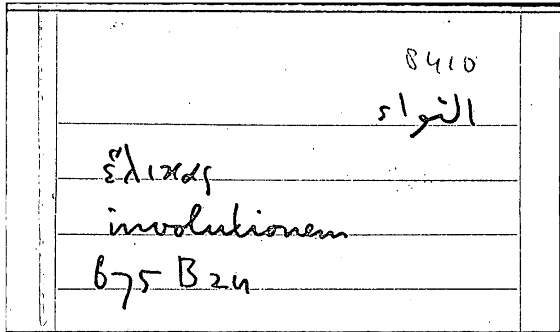 8410
التواء
ἕλικας
involutionem
675 B 24